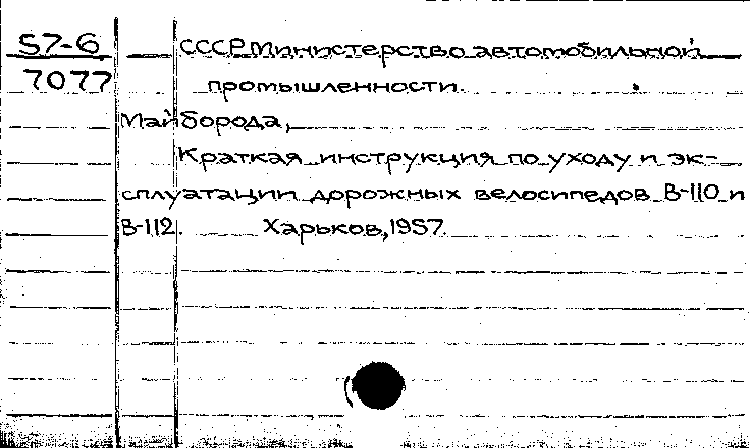 57-6 СССР. Министерство автомобильной
7077 промышленности.
Майборода,
Краткая инструкция по уходу и эк-
сплуатации дорожных велосипедов В-110 и
В-112. Харьков, 1957.